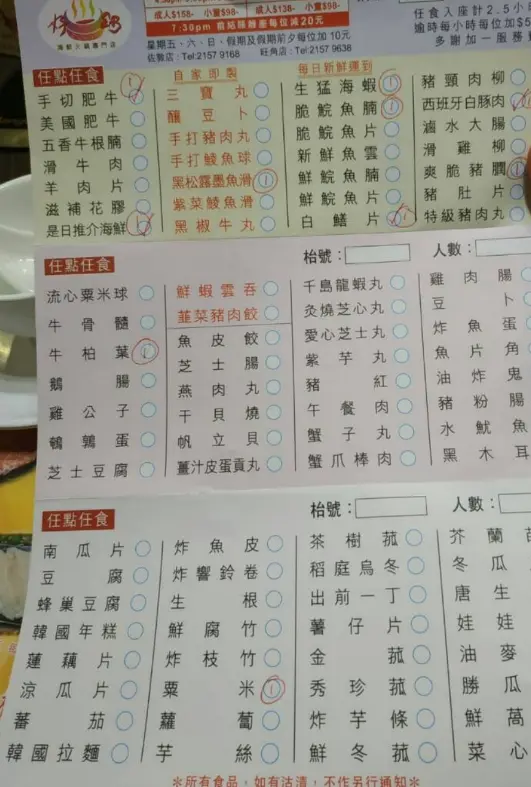 成人$158- 小童$98-
成人$138- 小童$98-
7:30pm 前結賬離座每位減20元
星期五、六、日、假期及假期前夕每位加10元
佐敦店：Tel:2157 9168 旺角店：Tel:2157 9636
任食入座計2.5小
逾時每小時每位加$
多謝加一服務
海鮮火鍋專門店
任點任食
手切肥牛
美國肥牛
五香牛根腩
滑牛肉
羊肉片
滋補花膠
是日推介海鮮
自家即製
三寶丸
釀豆卜
手打豬肉丸
手打鯪魚球
黑松露墨魚滑
紫菜鯪魚滑
黑椒牛丸
每日新鮮運到
生猛海蝦
脆鯇魚腩
脆鯇魚片
新鮮魚雲
鮮鯇魚腩
鮮鯇魚片
白鱔片
豬頸肉柳
西班牙白豚肉
滷水大腸
滑雞柳
爽脆豬膶
豬肚片
特級豬肉丸
任點任食
枱號：
人數：
流心粟米球
牛骨髓
牛柏葉
鵝腸
雞公子
鵪鶉蛋
芝士豆腐
鮮蝦雲吞
韮菜豬肉餃
魚皮餃
芝士腸
燕肉丸
干貝燒
帆立貝
薑汁皮蛋貢丸
千島龍蝦丸
灸燒芝心丸
愛心芝士丸
紫芋丸
豬紅
午餐肉
蟹子丸
蟹爪棒肉
雞肉腸
豆卜
炸魚蛋
魚片角
油炸鬼
豬粉腸
水魷魚
黑木耳
任點任食
枱號：
人數：
南瓜片
豆腐
蜂巢豆腐
韓國年糕
蓮藕片
涼瓜片
蕃茄
韓國拉麵
炸魚皮
炸響鈴卷
生根
鮮腐竹
炸枝竹
粟米
蘿蔔
芋絲
茶樹菰
稻庭烏冬
出前一丁
薯仔片
金菰
秀珍菰
炸芋條
鮮冬菰
芥蘭
冬瓜
唐生
娃娃
油麥
勝瓜
鮮萵
菜心
※所有食品，如有沽清，不作另行通知※